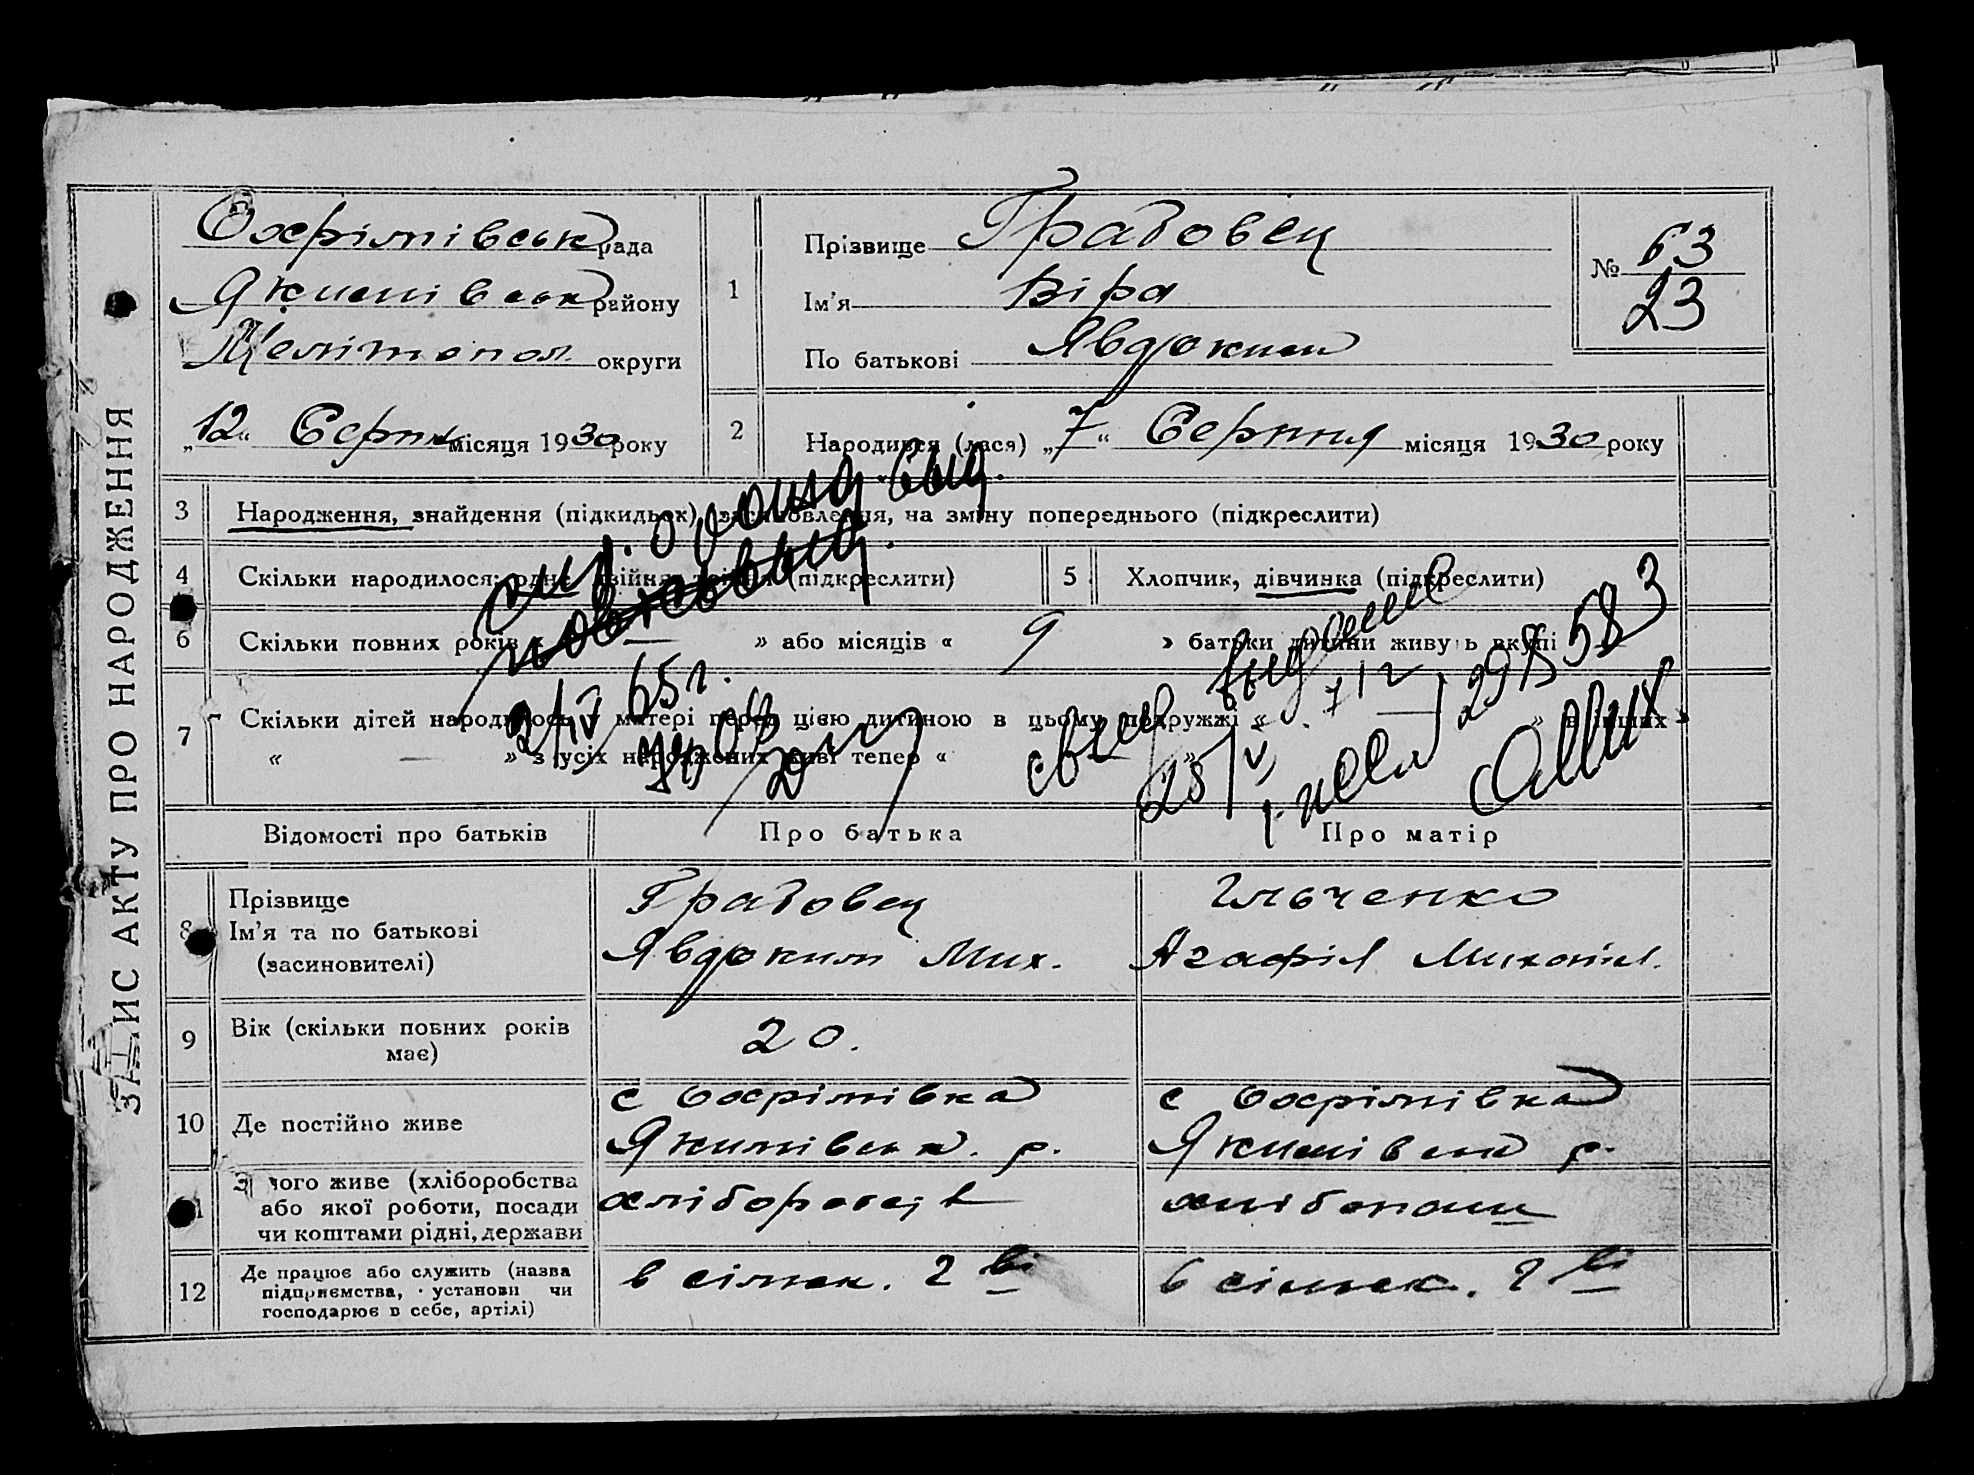 ЗАПИС АКТУ ПРО НАРОДЖЕННЯ
Охрімівськ рада
Якимівськ району
Мелітопол округи
„12“ Серпн місяця 1930 року
1
Прізвище Грабовец
Ім’я Віра
По батькові Явдоким
№ 63
23
2
Народився (лася) „7“ Серпня місяця 1930 року
3 Народження, знайдення (підкидьок), засиновлення, на зміну попереднього (підкреслити)
4 Скільки народилося: одне, двійня, трійня (підкреслити)
5 Хлопчик, дівчинка (підкреслити)
6 Скільки повних років « — » або місяців « 9 » батьки дитини живуть вкупі
7 Скільки дітей народилось у матері перед цією дитиною в цьому подружжі « — » в інших »
« — » з усіх народжених живі тепер « »
2/IV 65 г.
Відомості про батьків
Про батька
Про матір
8 Прізвище
Ім’я та по батькові
(засиновителі)
Грабовец
Явдоким Мих.
Ільченко
Агафія Михайл.
9 Вік (скільки повних років
має)
20.
10 Де постійно живе
с Охрімівка
Якимівськ. р.
с Охрімівка
Якимівськ р.
11 З чого живе (хліборобства
або якої роботи, посади
чи коштами рідні, держави
12 Де працює або служить (назва
підприємства, установи чи
господарює в себе, артілі)
в сільск. 2 ві
в сільск. 2 ві